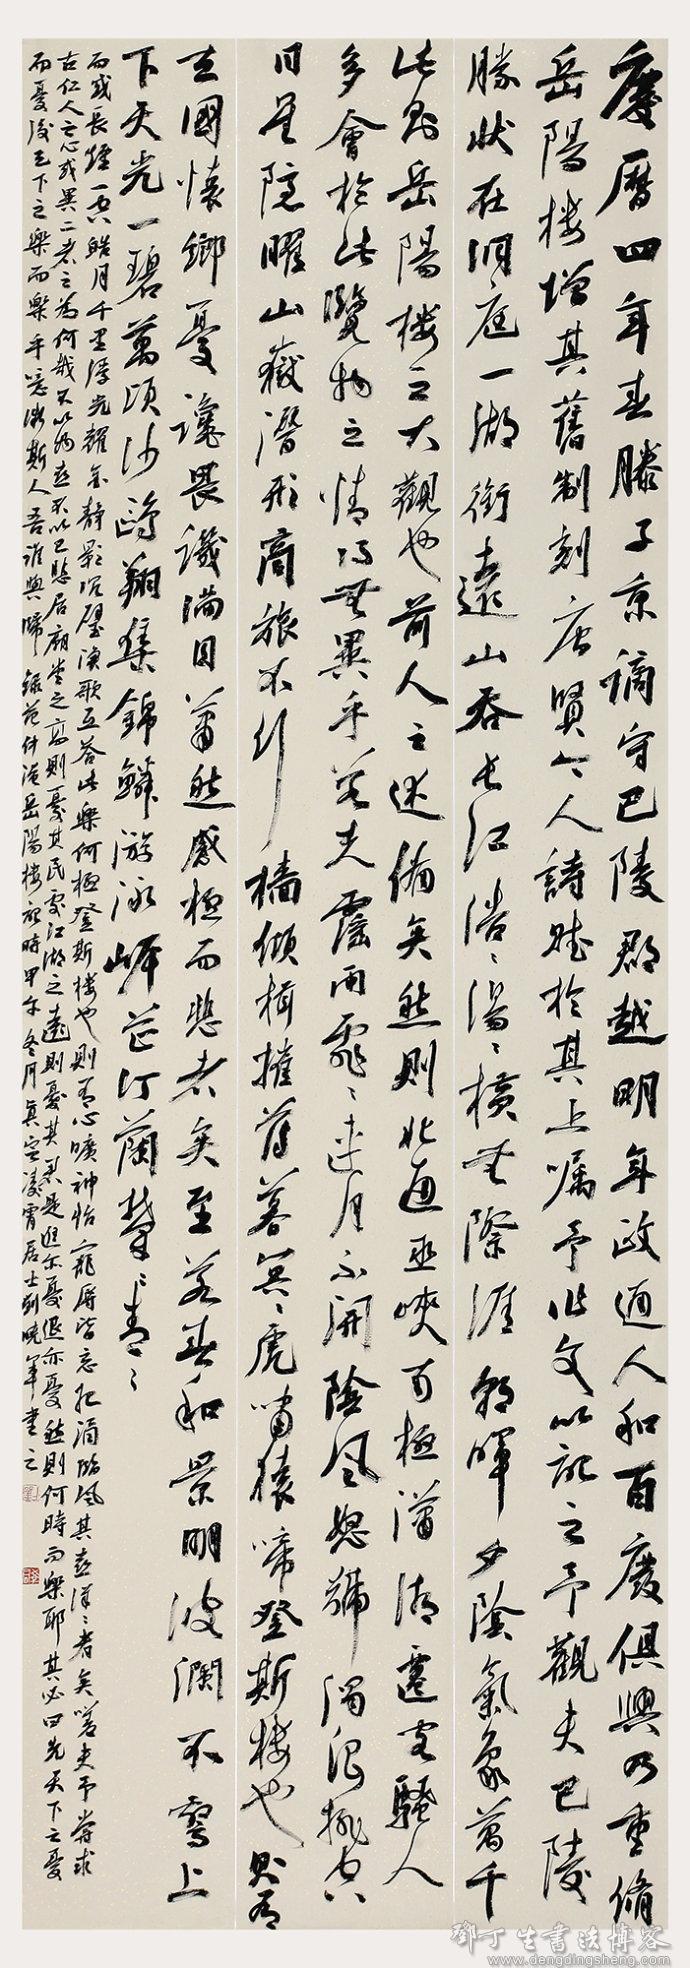 慶曆四年春滕子京謫守巴陵郡越明年政通人和百廢俱興乃重脩
岳陽樓增其舊制刻唐賢今人詩賦於其上嘱予作文以記之予觀夫巴陵
勝狀在洞庭一湖銜遠山吞長江浩〻湯〻橫無際涯朝暉夕陰氣象萬千
此則岳陽樓之大觀也前人之述備矣然則北通巫峽南極瀟湘遷客騷人
多會於此覽物之情得無異乎若夫霪雨霏〻連月不開陰風怒號濁浪排空
日星隱曜山嶽潛形商旅不行檣傾楫摧薄暮冥〻虎嘯猿啼登斯樓也則有
去國懷鄉憂讒畏譏滿目蕭然感極而悲者矣至若春和景明波瀾不驚上
下天光一碧萬頃沙鷗翔集錦鱗游泳岸芷汀蘭鬱〻青〻
而或長煙一空皓月千里浮光耀金靜影沉璧漁歌互答此樂何極登斯樓也則有心曠神怡寵辱皆忘把酒臨風其喜洋〻者矣嗟夫予嘗求
古仁人之心或異二者之為何哉不以物喜不以己悲居廟堂之高則憂其民處江湖之遠則憂其君是進亦憂退亦憂然則何時而樂耶其必曰先天下之憂
而憂後天下之樂而樂乎噫微斯人吾誰與歸 錄范仲淹岳陽樓記時甲午冬月真定凌霄居士劉曉軍書之
鄧丁生書法博客
www.dengdingsheng.com